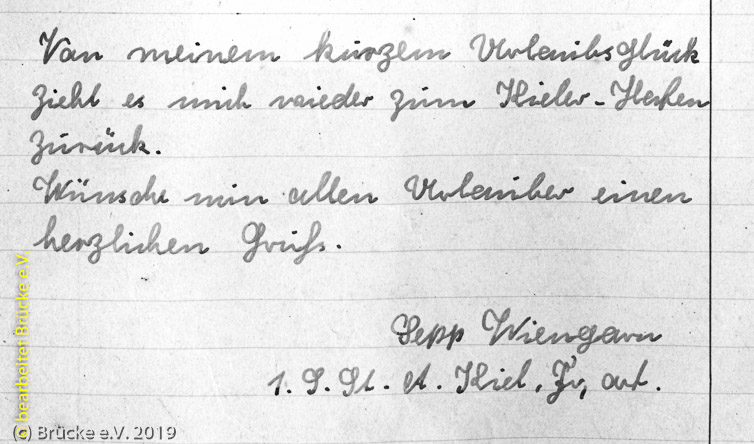 Von meinem kurzem Urlaubsglück
zieht es mich wieder zum Kieler-Hafen
zurück.
Wünsche nun allen Urlauber einen
herzlichen Gruß.
Sepp Wiengarn
1. S. St. A. Kiel,
bearbeitet Brücke e.V.
(c) Brücke e.V. 2019